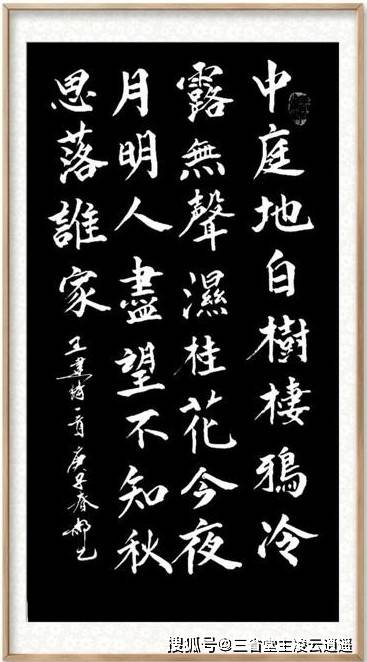 中庭地白樹棲鴉冷
露無聲濕桂花今夜
月明人盡望不知秋
思落誰家
王建詩一首庚子春
搜狐号@三省堂主凌云逍遥